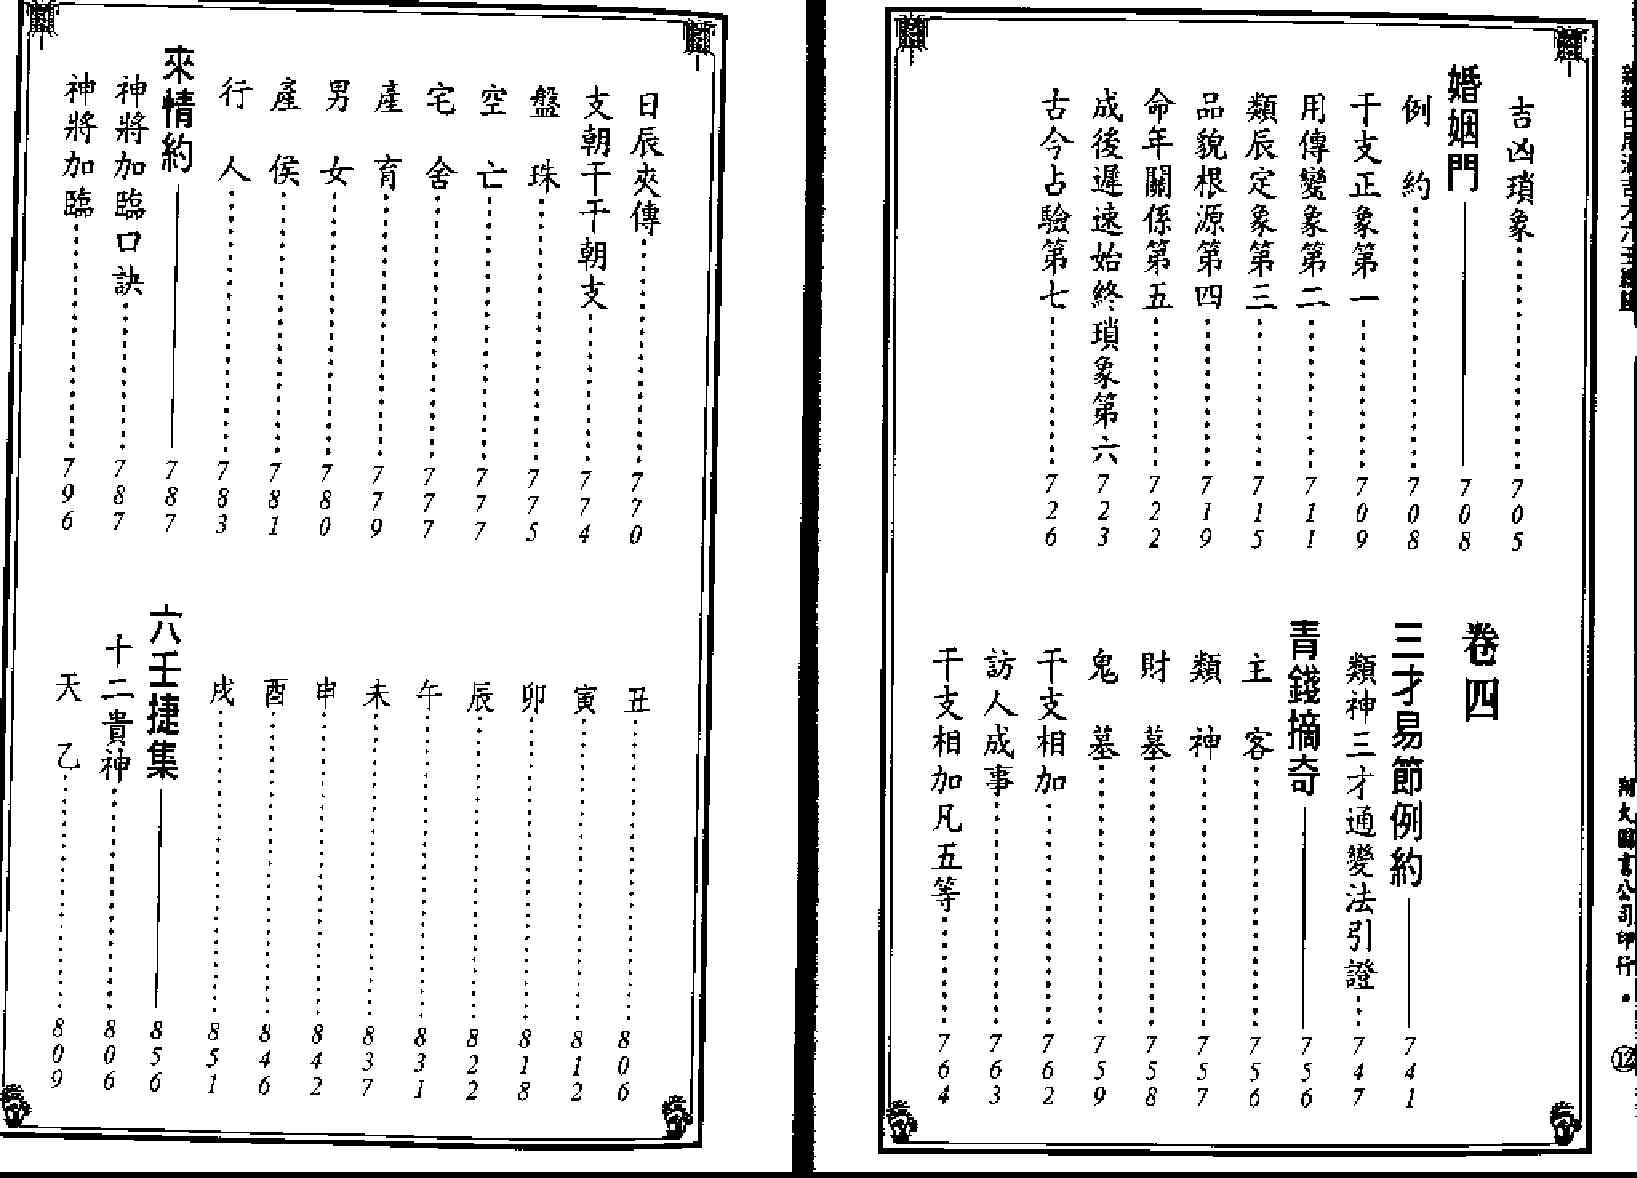 吉凶瑣象705
婚姻門708
例約708
干支正象第一709
用傳變象第二711
類辰定象第三715
品貌根源第四719
命年關係第五722
成後遲速始終瑣象第六723
古今占驗第七726
卷四
三才易節例約741
類神三才通變法引證747
青錢摘奇756
主客756
類神757
財墓758
鬼墓759
干支相加762
訪人成事763
干支相加凡五等764
日辰夾傳770
支朝干干朝支774
盤珠775
空亡777
宅舍777
產育779
男女780
產侯781
行人783
來情約787
神將加臨口訣787
神將加臨796
丑806
寅812
卯818
辰822
午831
未837
申842
酉846
戌851
六壬捷集856
十二貴神806
天乙809
公司印行
⑫